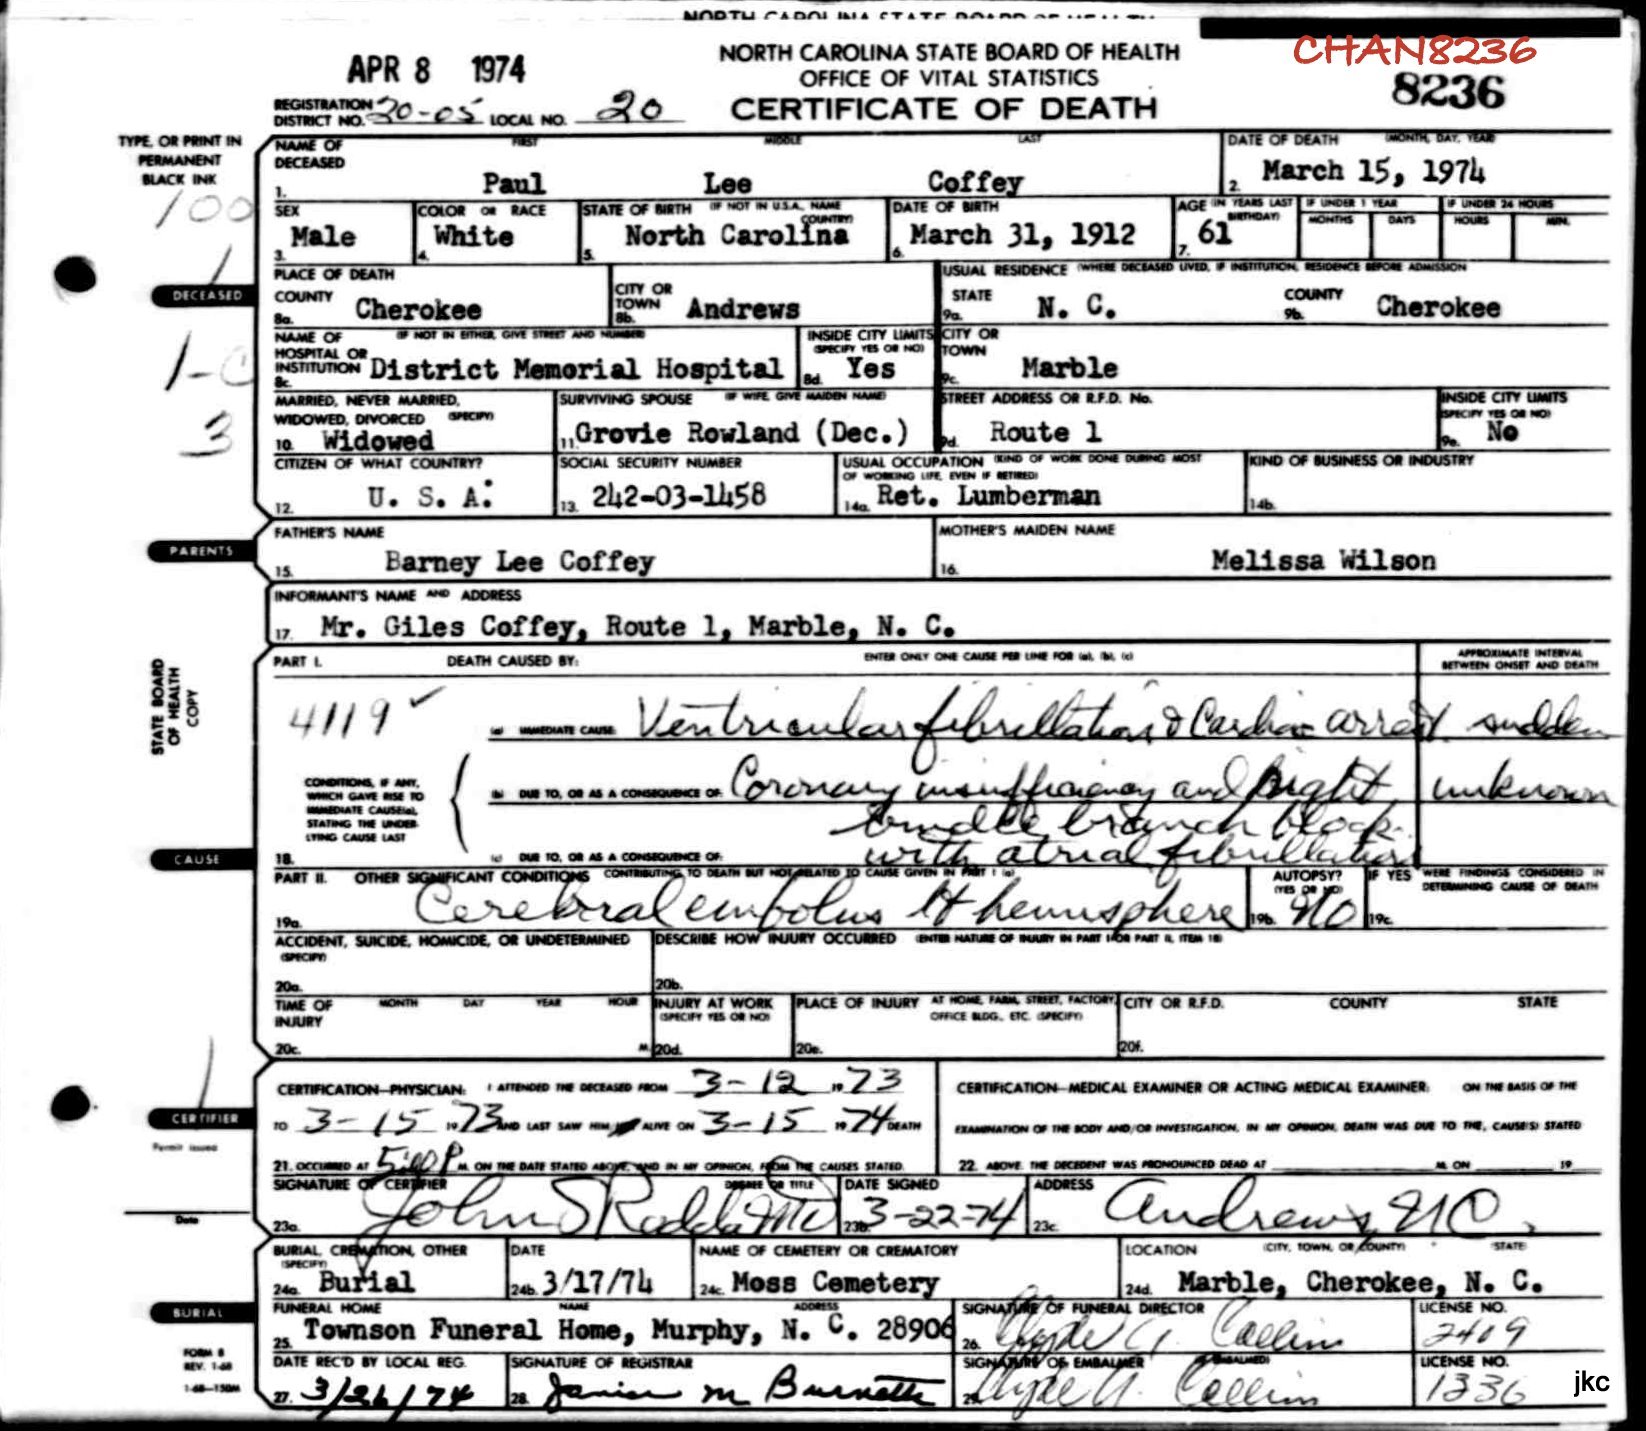 CHAN8236
8236
APR 8 1974
NORTH CAROLINA STATE BOARD OF HEALTH
OFFICE OF VITAL STATISTICS
CERTIFICATE OF DEATH
REGISTRATION DISTRICT NO. 20-05 LOCAL NO. 20
TYPE, OR PRINT IN
PERMANENT
BLACK INK
100
NAME OF DECEASED FIRST MIDDLE LAST
1. Paul Lee Coffey
DATE OF DEATH (MONTH, DAY, YEAR)
2. March 15, 1974
SEX
3. Male
COLOR OR RACE
4. White
STATE OF BIRTH (IF NOT IN U.S.A., NAME COUNTRY)
5. North Carolina
DATE OF BIRTH
6. March 31, 1912
AGE (IN YEARS LAST BIRTHDAY)
7. 61
IF UNDER 1 YEAR
MONTHS DAYS
IF UNDER 24 HOURS
HOURS MIN.
DECEASED
PLACE OF DEATH
COUNTY
8a. Cherokee
CITY OR TOWN
8b. Andrews
USUAL RESIDENCE (WHERE DECEASED LIVED, IF INSTITUTION, RESIDENCE BEFORE ADMISSION
STATE
9a. N. C.
COUNTY
9b. Cherokee
NAME OF HOSPITAL OR INSTITUTION (IF NOT IN EITHER, GIVE STREET AND NUMBER)
8c. District Memorial Hospital
INSIDE CITY LIMITS (SPECIFY YES OR NO)
8d. Yes
CITY OR TOWN
9c. Marble
MARRIED, NEVER MARRIED, WIDOWED, DIVORCED (SPECIFY)
10. Widowed
SURVIVING SPOUSE (IF WIFE, GIVE MAIDEN NAME)
11. Grovie Rowland (Dec.)
STREET ADDRESS OR R.F.D. No.
9d. Route 1
INSIDE CITY LIMITS (SPECIFY YES OR NO)
9e. No
3
CITIZEN OF WHAT COUNTRY?
12. U. S. A.
SOCIAL SECURITY NUMBER
13. 242-03-1458
USUAL OCCUPATION (KIND OF WORK DONE DURING MOST OF WORKING LIFE, EVEN IF RETIRED)
14a. Ret. Lumberman
KIND OF BUSINESS OR INDUSTRY
14b.
PARENTS
FATHER'S NAME
15. Barney Lee Coffey
MOTHER'S MAIDEN NAME
16. Melissa Wilson
INFORMANT'S NAME AND ADDRESS
17. Mr. Giles Coffey, Route 1, Marble, N. C.
STATE BOARD
OF HEALTH
COPY
PART I. DEATH CAUSED BY: ENTER ONLY ONE CAUSE PER LINE FOR (a), (b), (c)
APPROXIMATE INTERVAL BETWEEN ONSET AND DEATH
4119 ✓
(a) IMMEDIATE CAUSE: Ventricular fibrillation & Cardiac arrest sudden
CONDITIONS, IF ANY,
WHICH GAVE RISE TO
IMMEDIATE CAUSE(a),
STATING THE UNDER-
LYING CAUSE LAST
(b) DUE TO, OR AS A CONSEQUENCE OF: Coronary insufficiency and Right unknown
bundle branch block
CAUSE
18. (c) DUE TO, OR AS A CONSEQUENCE OF: with atrial fibrillation
PART II. OTHER SIGNIFICANT CONDITIONS CONTRIBUTING TO DEATH BUT NOT RELATED TO CAUSE GIVEN IN PART I (a)
19a. Cerebral embolus lt hemisphere
AUTOPSY? (YES OR NO)
19b. NO
IF YES WERE FINDINGS CONSIDERED IN DETERMINING CAUSE OF DEATH
19c.
ACCIDENT, SUICIDE, HOMICIDE, OR UNDETERMINED (SPECIFY)
20a.
DESCRIBE HOW INJURY OCCURRED (ENTER NATURE OF INJURY IN PART I OR PART II, ITEM 18)
20b.
TIME OF INJURY MONTH DAY YEAR HOUR
20c. M.
INJURY AT WORK (SPECIFY YES OR NO)
20d.
PLACE OF INJURY AT HOME, FARM, STREET, FACTORY, OFFICE BLDG., ETC. (SPECIFY)
20e.
CITY OR R.F.D. COUNTY STATE
20f.
CERTIFIER
Permit issued
Date
CERTIFICATION—PHYSICIAN: I ATTENDED THE DECEASED FROM 3-12 1973
TO 3-15 1973 AND LAST SAW HIM ALIVE ON 3-15 1974 DEATH
21. OCCURRED AT 5:40 P M. ON THE DATE STATED ABOVE, AND IN MY OPINION, FROM THE CAUSES STATED.
CERTIFICATION—MEDICAL EXAMINER OR ACTING MEDICAL EXAMINER: ON THE BASIS OF THE
EXAMINATION OF THE BODY AND/OR INVESTIGATION, IN MY OPINION, DEATH WAS DUE TO THE, CAUSE(S) STATED
22. ABOVE. THE DECEDENT WAS PRONOUNCED DEAD AT M. ON 19
SIGNATURE OF CERTIFIER DEGREE OR TITLE
23a. John S Rodda MD
DATE SIGNED
23b. 3-22-74
ADDRESS
23c. Andrews, NC,
BURIAL
BURIAL, CREMATION, OTHER (SPECIFY)
24a. Burial
DATE
24b. 3/17/74
NAME OF CEMETERY OR CREMATORY
24c. Moss Cemetery
LOCATION (CITY, TOWN, OR COUNTY) (STATE)
24d. Marble, Cherokee, N. C.
FUNERAL HOME NAME ADDRESS
25. Townson Funeral Home, Murphy, N. C. 28906
SIGNATURE OF FUNERAL DIRECTOR
26. Clyde A. Collins
LICENSE NO.
2409
FORM 8
REV. 1-68
1-68—150M
DATE REC'D BY LOCAL REG.
27. 3/26/74
SIGNATURE OF REGISTRAR
28. Janice M Burnette
SIGNATURE OF EMBALMER (IF EMBALMED)
29. Clyde A. Collins
LICENSE NO.
1336
jkc